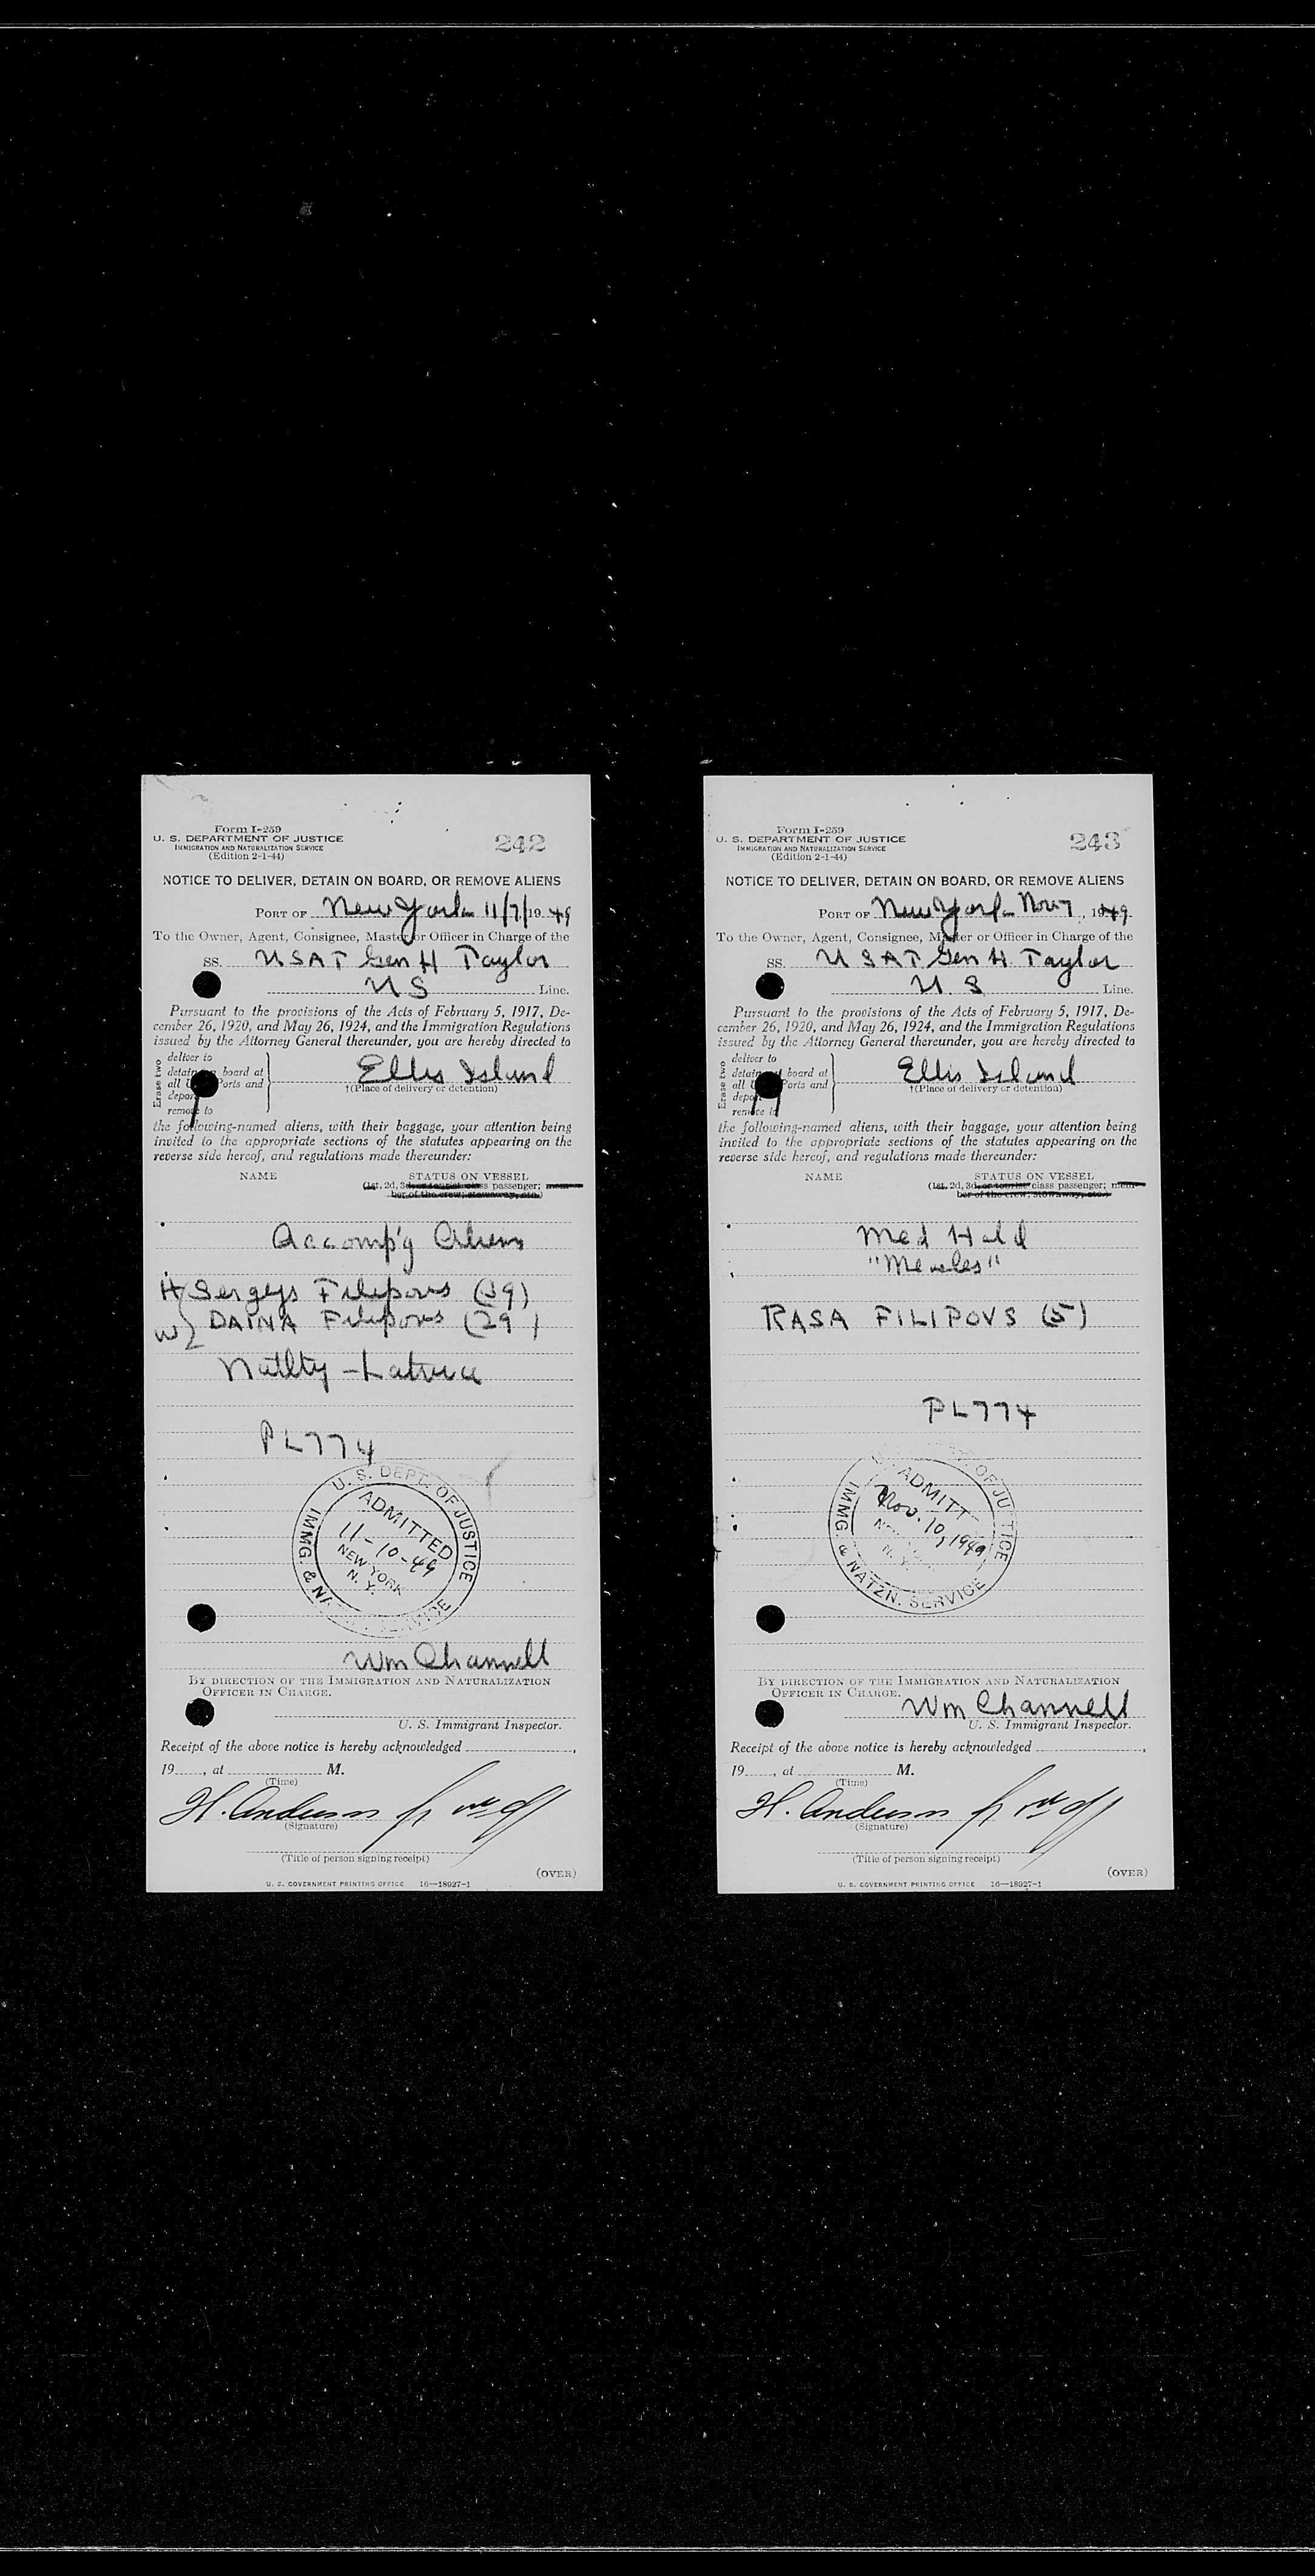 Form I-259
U. S. DEPARTMENT OF JUSTICE
IMMIGRATION AND NATURALIZATION SERVICE
(Edition 2-1-44)
242
NOTICE TO DELIVER, DETAIN ON BOARD, OR REMOVE ALIENS
PORT OF New York 11/7/1949
To the Owner, Agent, Consignee, Master or Officer in Charge of the
SS. USAT Gen H Taylor
US Line.
Pursuant to the provisions of the Acts of February 5, 1917, De-
cember 26, 1920, and May 26, 1924, and the Immigration Regulations
issued by the Attorney General thereunder, you are hereby directed to
Erase two
deliver to
detain board at
all Ports and
remove to
Ellis Island
†(Place of delivery or detention)
the following-named aliens, with their baggage, your attention being
invited to the appropriate sections of the statutes appearing on the
reverse side hereof, and regulations made thereunder:
NAME STATUS ON VESSEL
(1st, 2d, 3d, or tourist class passenger; mem-
ber of the crew; stowaway, etc.)
Accomp'g Aliens
H Sergejs Filipovs (39)
W DAINA Filipovs (29)
Natlty - Latvia
PL774
U. S. DEPT. OF JUSTICE
ADMITTED
11-10-49
NEW YORK
N. Y.
IMMG. & NATZN. SERVICE
Wm Channell
BY DIRECTION OF THE IMMIGRATION AND NATURALIZATION
OFFICER IN CHARGE.
U. S. Immigrant Inspector.
Receipt of the above notice is hereby acknowledged ,
19 , at M.
(Time)
H. Anderson
(Signature)
(Title of person signing receipt)
(OVER)
U. S. GOVERNMENT PRINTING OFFICE 16—18927-1
Form I-259
U. S. DEPARTMENT OF JUSTICE
IMMIGRATION AND NATURALIZATION SERVICE
(Edition 2-1-44)
243
NOTICE TO DELIVER, DETAIN ON BOARD, OR REMOVE ALIENS
PORT OF New York Nov 7, 1949
To the Owner, Agent, Consignee, Master or Officer in Charge of the
SS. USAT Gen H. Taylor
U. S Line.
Pursuant to the provisions of the Acts of February 5, 1917, De-
cember 26, 1920, and May 26, 1924, and the Immigration Regulations
issued by the Attorney General thereunder, you are hereby directed to
Erase two
deliver to
detain board at
all Ports and
remove to
Ellis Island
†(Place of delivery or detention)
the following-named aliens, with their baggage, your attention being
invited to the appropriate sections of the statutes appearing on the
reverse side hereof, and regulations made thereunder:
NAME STATUS ON VESSEL
(1st, 2d, 3d, or tourist class passenger; mem-
ber of the crew; stowaway, etc.)
Med Hold
"Measles"
RASA FILIPOVS (5)
PL774
OF JUSTICE
ADMITT
Nov. 10, 1949
N. Y.
IMMG. & NATZN. SERVICE
BY DIRECTION OF THE IMMIGRATION AND NATURALIZATION
OFFICER IN CHARGE.
Wm Channell
U. S. Immigrant Inspector.
Receipt of the above notice is hereby acknowledged ,
19 , at M.
(Time)
H. Anderson
(Signature)
(Title of person signing receipt)
(OVER)
U. S. GOVERNMENT PRINTING OFFICE 16—18927-1